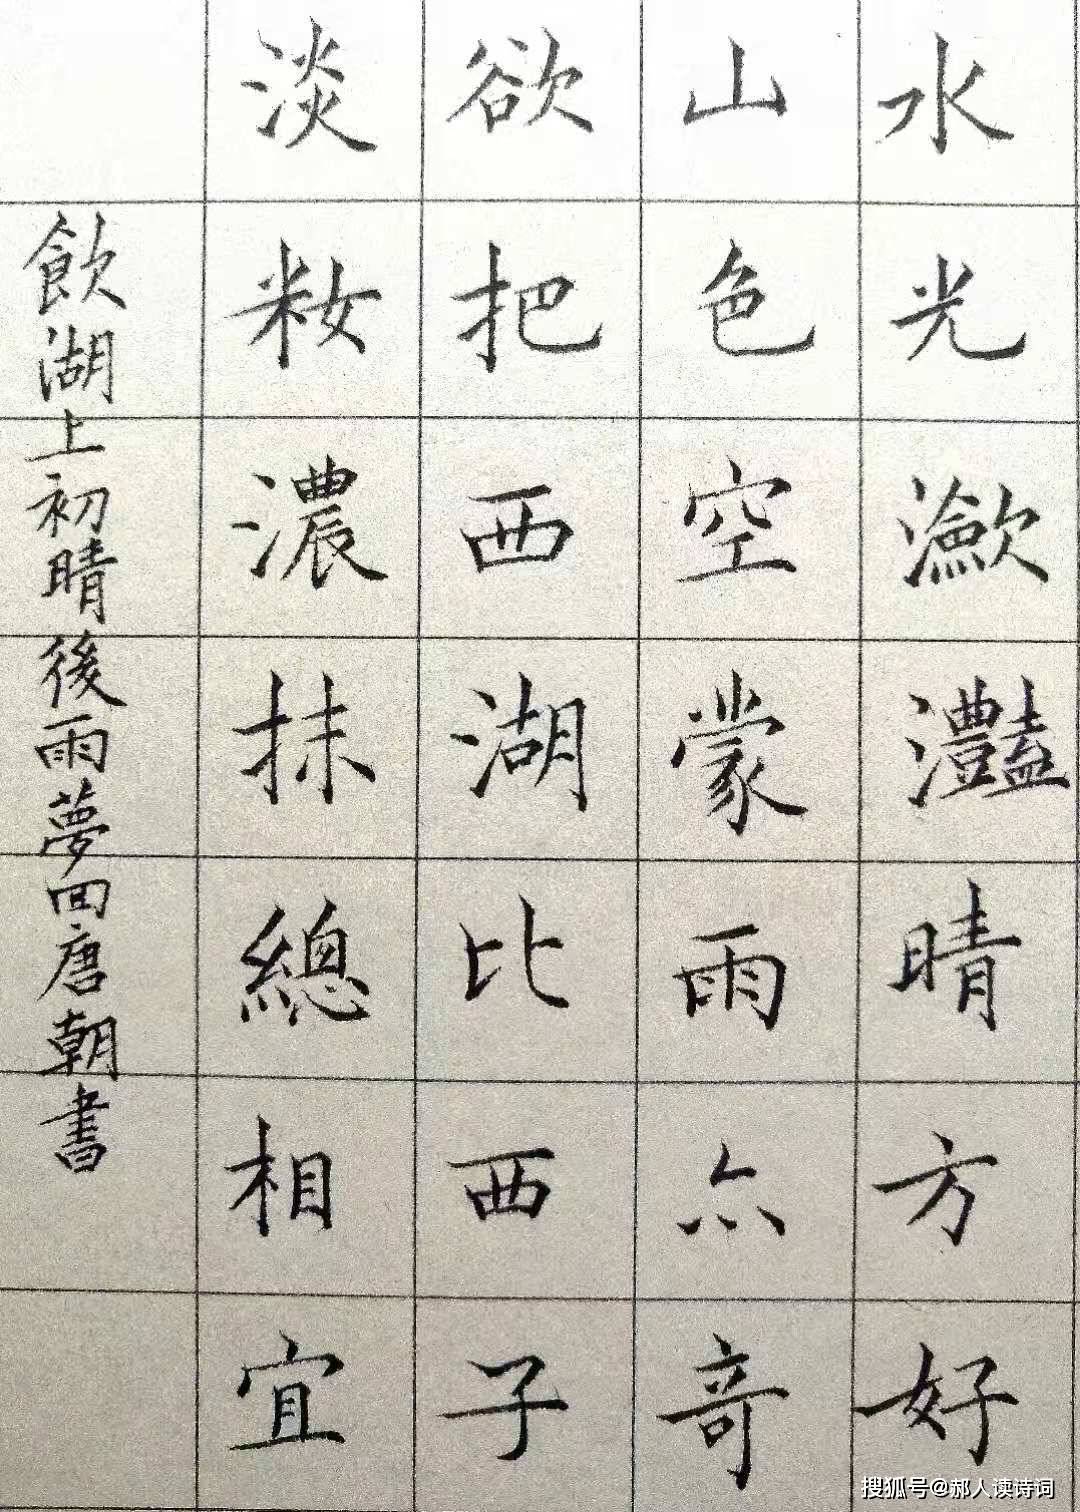 水光瀲灩晴方好
山色空蒙雨亦奇
欲把西湖比西子
淡籹濃抹總相宜
飲湖上初晴後雨夢回唐朝書
搜狐号@郝人读诗词